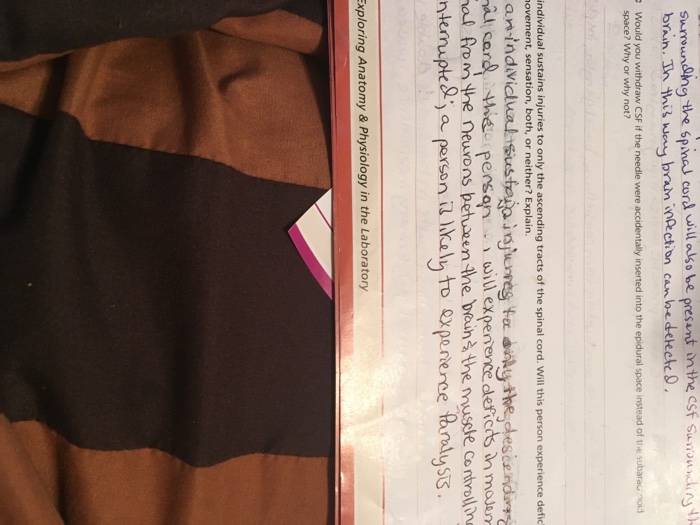 surrounding the spinal cord will also be present in the CSF surrounding th
brain. In this way brain infection can be detected.
Would you withdraw CSF if the needle were accidentally inserted into the epidural space instead of the subarachnoid
space? Why or why not?
individual sustains injuries to only the ascending tracts of the spinal cord. Will this person experience defic
ovement, sensation, both, or neither? Explain.
an individual sustain injuries to only the descending
nal cord, this person will experience deficits in movem
nal from the neurons between the brain & the muscle controlling
nterrupted; a person is likely to experience Paralysis.
Exploring Anatomy & Physiology in the Laboratory